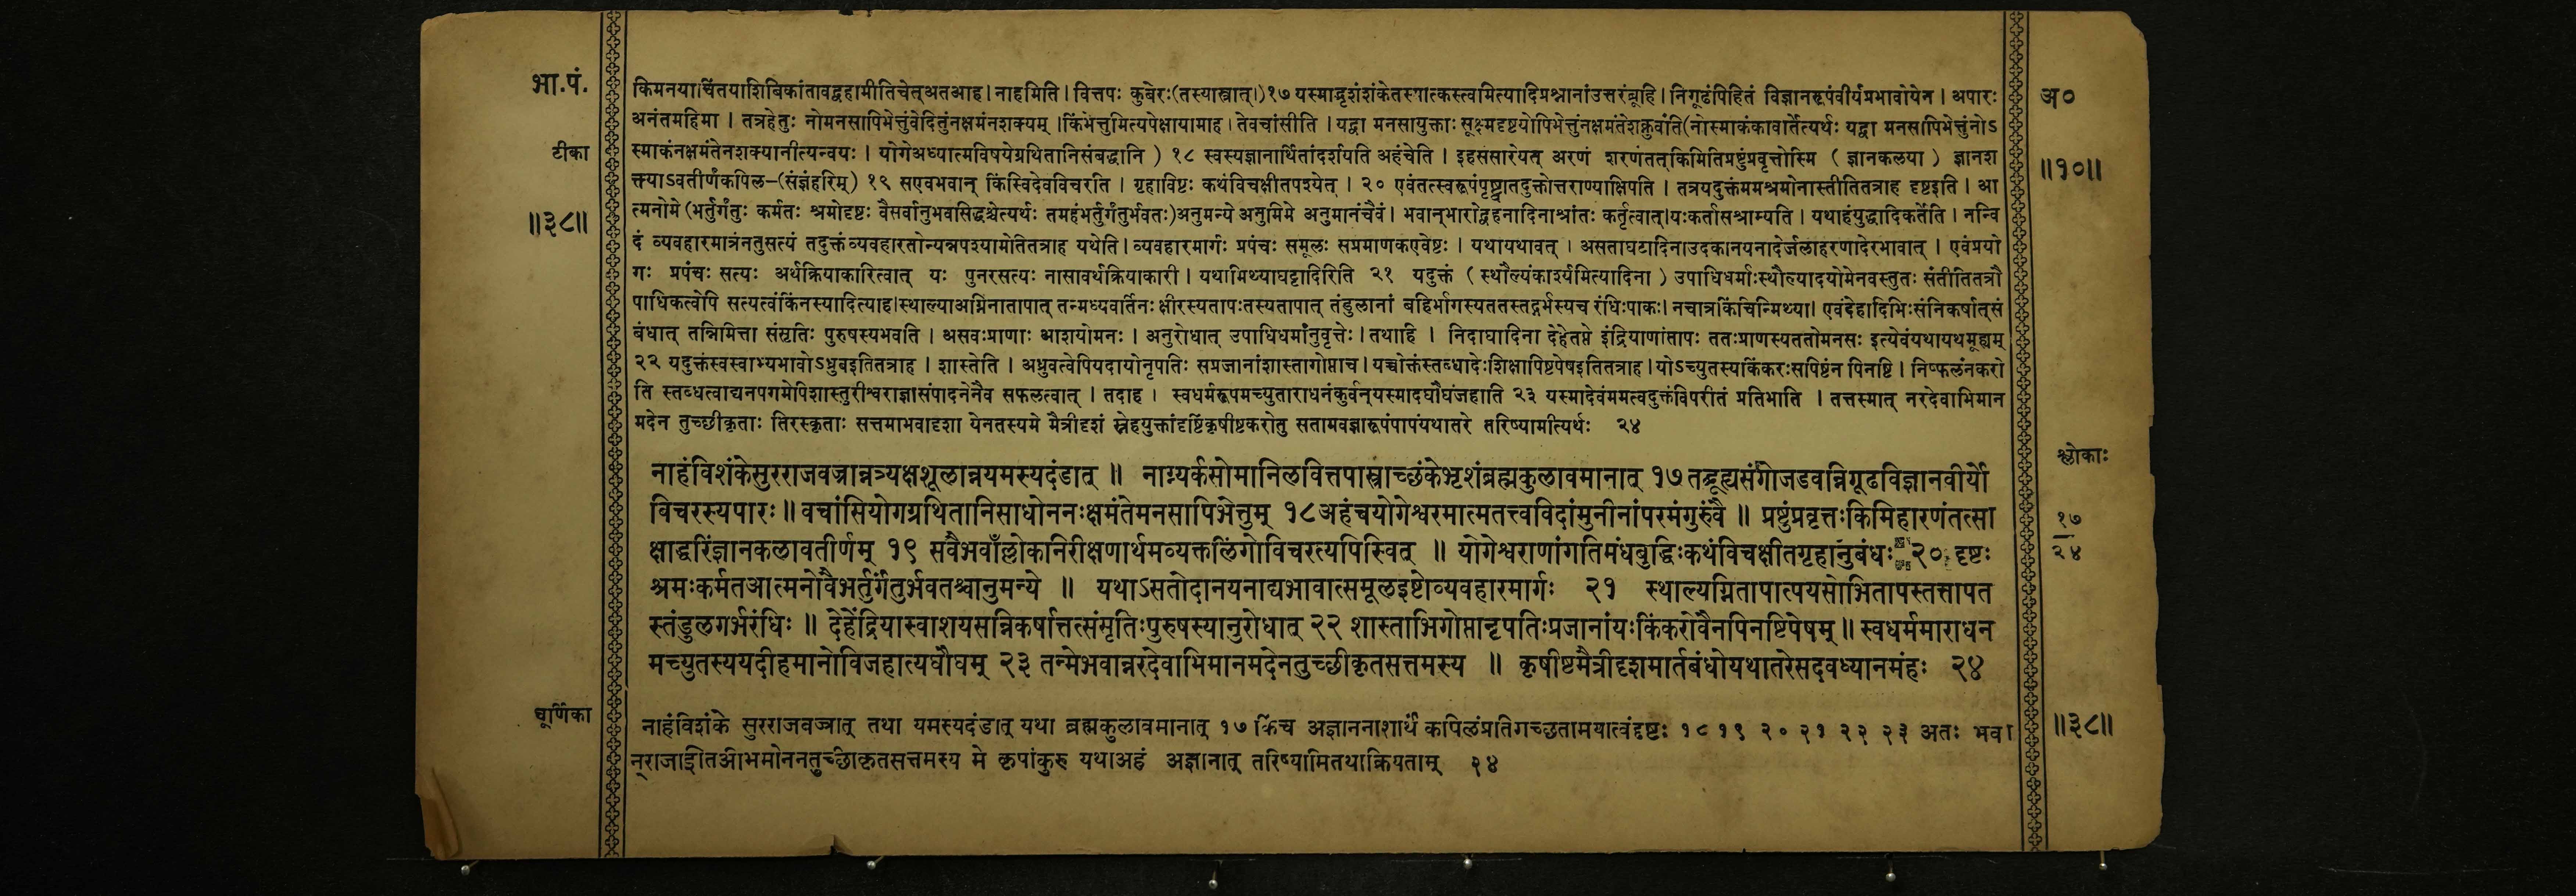 भा.पं.
टीका
॥३८॥
किमनया।चिंतयाशिबिकांतावद्वहामीतिचेत्अतआह।नाहमिति। वित्तपः कुबेरः(तस्यास्त्रात्।)१७ यस्माद्भृशंशंकेतस्मात्कस्त्वमित्यादिप्रश्नानांउत्तरंब्रूहि। निगूढंपिहितं विज्ञानरूपंवीर्यंप्रभावोयेन। अपारः
अनंतमहिमा । तत्रहेतुः नोमनसापिभेत्तुंवेदितुंनक्षमंनशक्यम् ।किंभेत्तुमित्यपेक्षायामाह। तेवचांसीति । यद्वा मनसायुक्ताः सूक्ष्मदृष्टयोपिभेत्तुंनक्षमंतेशक्नुवंति(नोस्माकंकावार्तेत्यर्थः यद्वा मनसापिभेत्तुंनोऽ
स्माकंनक्षमंतेनशक्यानीत्यन्वयः । योगेअध्यात्मविषयेग्रथितानिसंबद्धानि ) १८ स्वस्यज्ञानार्थितांदर्शयति अहंचेति । इहसंसारेयत् अरणं शरणंतत्किमितिप्रष्टुंप्रवृत्तोस्मि ( ज्ञानकलया ) ज्ञानश
क्त्याऽवतीर्णंकपिल-(संज्ञंहरिम्) १९ सएवभवान् किंस्विदेवविचरति । गृहाविष्टः कथंविचक्षीतपश्येत् । २० एवंतत्स्वरूपंपृष्ट्वातदुक्तोत्तराण्याक्षिपति । तत्रयदुक्तंममश्रमोनास्तीतितत्राह दृष्टइति । आ
त्मनोमे(भर्तुर्गंतुः कर्मतः श्रमोदृष्टः वैसर्वानुभवसिद्धश्चेत्यर्थः तमहंभर्तुर्गंतुर्भवतः)अनुमन्ये अनुमिमे अनुमानंचैवं। भवान्भारोद्वहनादिनाश्रांतः कर्तृत्वात्।यःकर्तासश्राम्यति । यथाहंयुद्धादिकर्तेति । नन्वि
दं व्यवहारमात्रंनतुसत्यं तदुक्तंव्यवहारतोन्यन्नपश्यामोतितत्राह यथेति। व्यवहारमार्गः प्रपंचः समूलः सप्रमाणकएवेष्टः । यथायथावत् । असताघटादिनाउदकानयनादेर्जलाहरणादेरभावात् । एवंप्रयो
गः प्रपंचः सत्यः अर्थक्रियाकारित्वात् यः पुनरसत्यः नासावर्थक्रियाकारी। यथामिथ्याघट्टादिरिति २१ यदुक्तं ( स्थौल्यंकार्श्यमित्यादिना ) उपाधिधर्माःस्थौल्यादयोमेनवस्तुतः संतीतितत्रौ
पाधिकत्वेपि सत्यत्वंकिंनस्यादित्याह।स्थाल्याअग्निनातापात् तन्मध्यवर्तिनः क्षीरस्यतापःतस्यतापात् तंडुलानां बहिर्भागस्यततस्तद्गर्भस्यच रंधिःपाकः। नचात्रकिंचिन्मिथ्या। एवंदेहादिभिःसंनिकर्षात्सं
बंधात् तन्निमित्ता संसृतिः पुरुषस्यभवति । असवःप्राणाः आशयोमनः । अनुरोधात् उपाधिधर्मानुवृत्तेः। तथाहि । निदाघादिना देहेतप्ते इंद्रियाणांतापः ततःप्राणस्यततोमनसः इत्येवंयथायथमूह्यम्
२२ यदुक्तंस्वस्वाम्यभावोऽध्रुवइतितत्राह । शास्तेति । अध्रुवत्वेपियदायोनृपतिः सप्रजानांशास्तागोप्ताच। यच्चोक्तंस्तब्धादेःशिक्षापिष्टपेषइतितत्राह।योऽच्युतस्यकिंकरःसपिष्टंन पिनष्टि । निष्फलंनकरो
ति स्तब्धत्वाद्यनपगमेपिशास्तुरीश्वराज्ञासंपादनेनैव सफलत्वात् । तदाह । स्वधर्मरूपमच्युताराधनंकुर्वन्यस्मादघौघंजहाति २३ यस्मादेवंममत्वदुक्तंविपरीतं प्रतिभाति । तत्तस्मात् नरदेवाभिमान
मदेन तुच्छीकृताः तिरस्कृताः सत्तमाभवादृशा येनतस्यमे मैत्रीदृशं स्नेहयुक्तांदृष्टिंकृषीष्टकरोतु सतामवज्ञारूपंपापंयथातरे तरिष्यामीत्यर्थः २४
नाहंविशंकेसुरराजवज्रान्नत्र्यक्षशूलान्नयमस्यदंडात् ॥ नाग्न्यर्कसोमानिलवित्तपास्त्राच्छंकेभृशंब्रह्मकुलावमानात् १७ तद्ब्रूह्यसंगोजडवन्निगूढविज्ञानवीर्यो
विचरस्यपारः ॥ वचांसियोगग्रथितानिसाधोननःक्षमंतेमनसापिभेत्तुम् १८अहंचयोगेश्वरमात्मतत्त्वविदांमुनीनांपरमंगुरुंवै ॥ प्रष्टुंप्रवृत्तःकिमिहारणंतत्सा
क्षाद्धरिंज्ञानकलावतीर्णम् १९ सवैभवाँल्लोकनिरीक्षणार्थमव्यक्तलिंगोविचरत्यपिस्वित् ॥ योगेश्वराणांगतिमंधबुद्धिःकथंविचक्षीतगृहानुबंधः २० दृष्टः
श्रमःकर्मतआत्मनोवैभर्तुर्गंतुर्भवतश्चानुमन्ये ॥ यथाऽसतोदानयनाद्यभावात्समूलइष्टोव्यवहारमार्गः २१ स्थाल्यग्नितापात्पयसोभितापस्तत्तापत
स्तंडुलगर्भरंधिः ॥ देहेंद्रियास्वाशयसन्निकर्षात्तत्संसृतिःपुरुषस्यानुरोधात् २२ शास्ताभिगोप्तानृपतिःप्रजानांयःकिंकरोवैनपिनष्टिपेषम् ॥ स्वधर्ममाराधन
मच्युतस्ययदीहमानोविजहात्यघौघम् २३ तन्मेभवान्नरदेवाभिमानमदेनतुच्छीकृतसत्तमस्य ॥ कृषीष्टमैत्रीदृशमार्तबंधोयथातरेसदवध्यानमंहः २४
चूर्णिका
नाहंविशंके सुरराजवज्रात् तथा यमस्यदंडात् यथा ब्रह्मकुलावमानात् १७ किंच अज्ञाननाशार्थं कपिलंप्रतिगच्छतामयात्वंदृष्टः १८ १९ २० २१ २२ २३ अतः भवा
न्राजाइतिअभिमानेनतुच्छीकृतसत्तमस्य मे कृपांकुरु यथाअहं अज्ञानात् तरिष्यामितथाक्रियताम् २४
अ०
॥१०॥
श्लोकाः
१७
२४
॥३८॥